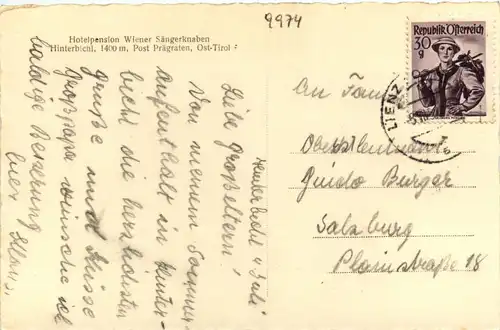 Hotelpension Wiener Sängerknaben
Hinterbichl, 1400 m, Post Prägraten, Ost-Tirol
9974
Hinterbichl 4. Juli
Liebe Großeltern!
Von meinem Sommer-
aufenthalt in Hinter-
bichl die herzlichsten
Grüße und Küsse
Großpapa wünsche ich
baldige Besserung
Euer Klaus.
Republik Österreich
30 g
LIENZ
An Fam.
Oberstleutnant
Guido Burger
Salzburg
Plainstraße 18